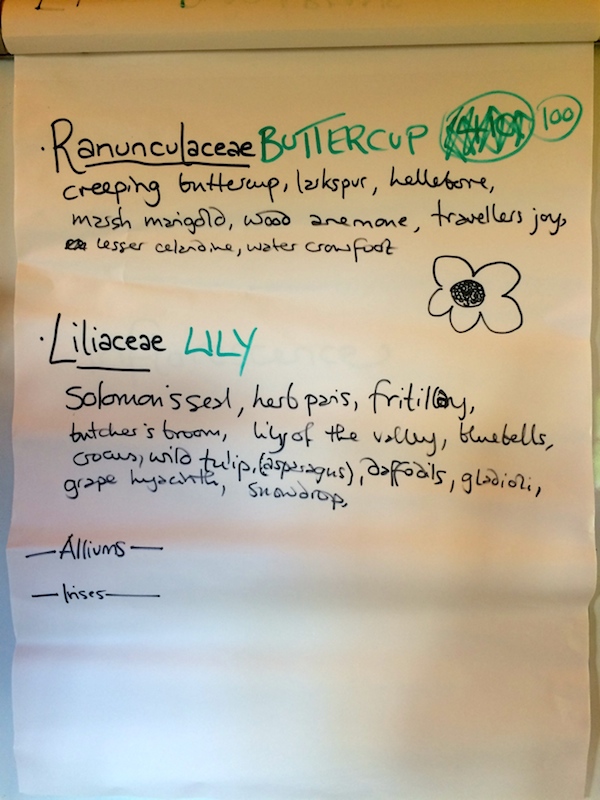 · Ranunculaceae BUTTERCUP 100
creeping buttercup, larkspur, hellebore,
marsh marigold, wood anemone, travellers joy,
lesser celandine, water crowfoot
· Liliaceae LILY
Solomon's seal, herb paris, fritillary,
butcher's broom, lily of the valley, bluebells,
crocus, wild tulip, (asparagus), daffodils, gladioli,
grape hyacinth, snowdrop,
— Alliums —
— Irises —